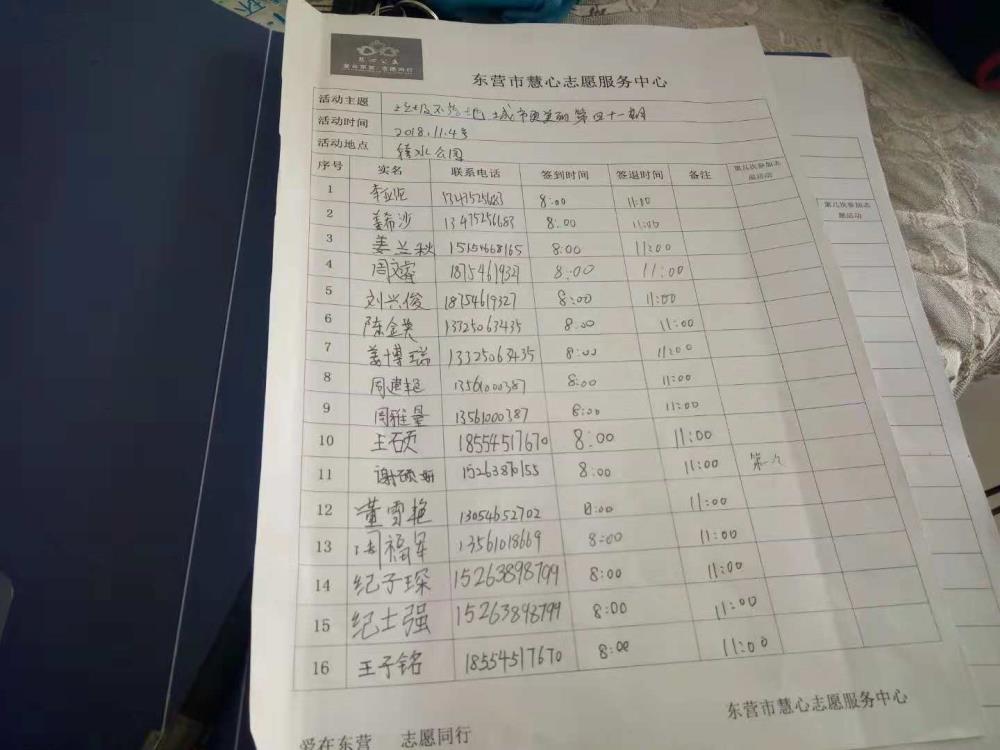 慧心公益
爱在东营 志愿同行
东营市慧心志愿服务中心
活动主题 垃圾不落地 城市更美丽 第四十一期
活动时间 2018.11.4号
活动地点 公园
序号 实名 联系电话 签到时间 签退时间 备注 第几次参加志愿活动
1 8:00 11:00
2 姜希沙 13475256683 8:00 11:00
3 姜兰秋 15154668165 8:00 11:00
4 周文睿 18754619327 8:00 11:00
5 刘兴俊 18754619327 8:00 11:00
6 陈金英 13325063435 8:00 11:00
7 姜博瑞 13325063435 8:00 11:00
8 周建艳 13561000387 8:00 11:00
9 周雅量 13561000387 8:00 11:00
10 王硕 18554517670 8:00 11:00
11 谢硕 15263870155 8:00 11:00 第一次
12 董雪艳 13054652702 8:00 11:00
13 周福星 13561018669 8:00 11:00
14 纪子琛 15263898799 8:00 11:00
15 纪士强 15263898799 8:00 11:00
16 王子铭 18554517670 8:00 11:00
东营市慧心志愿服务中心
爱在东营 志愿同行
第几次参加志愿活动